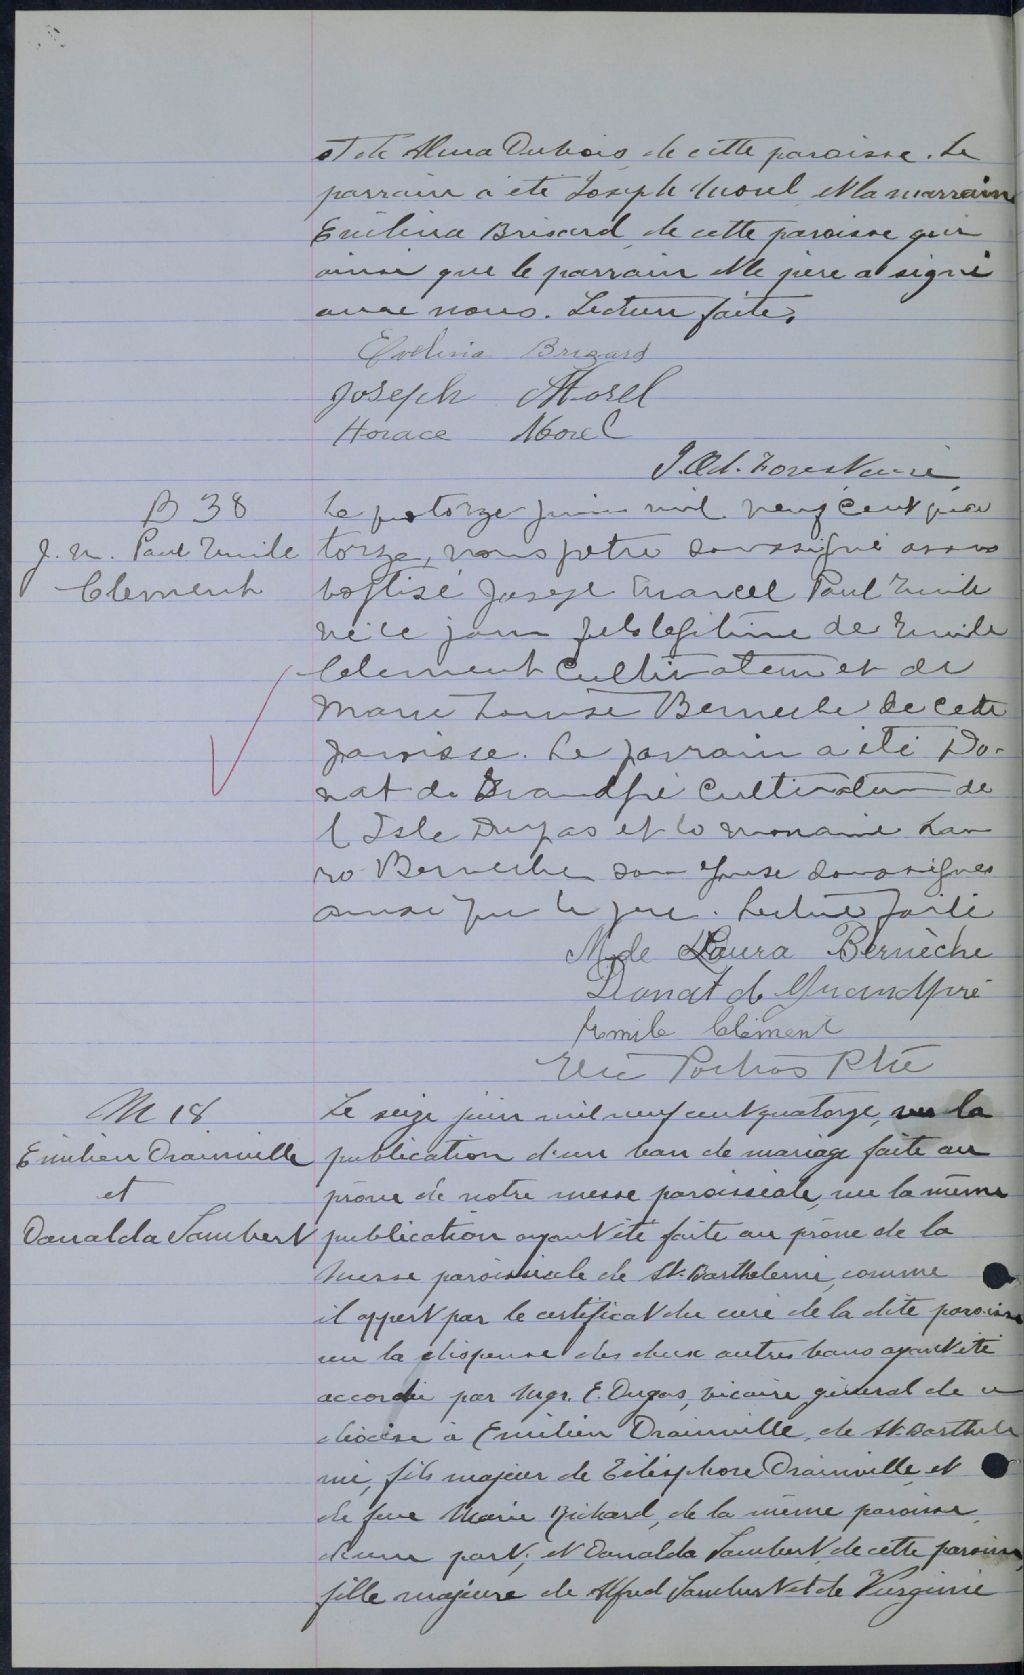 et de Alma Dubois de cette paroisse. Le
parrain a été Joseph Morel et la marraine
Evélina Brisard de cette paroisse qui
ainsi que le parrain et le père a signé
avec nous. Lecture faite.
Evelina Brizard
Joseph Morel
Horace Morel
J. Od. Forest curé
B 38
J. M. Paul Emile
Clement
Le quatorze juin mil neuf cent qua
torze, nous prêtre soussigné avons
baptisé Joseph Marcel Paul Emile
né ce jour fils légitime de Emile
Clement Cultivateur et de
Marie Louise Berneche de cette
paroisse. Le parrain a été Do-
nat de Grandpré Cultivateur de
l'Isle Dupas et la marraine Lau
ra Berneche son épouse soussignés
ainsi que le père. Lecture faite
Mde Laura Bernèche
Donat de Grandpré
Emile Clément
Ptre
M 18
Emilien Drainville
et
Donalda Lambert
Le seize juin mil neuf cent quatorze, vu la
publication d'un ban de mariage faite au
prône de notre messe paroissiale, vu la même
publication ayant été faite au prône de la
messe paroissiale de St. Barthelemi, comme
il appert par le certificat du curé de la dite paroisse
vu la dispense des deux autres bans ayant été
accordée par Mgr. E. Dugas, vicaire général de ce
diocèse à Emilien Drainville, de St. Barthele
mi, fils majeur de Télesphore Drainville et
de feue Marie Richard, de la même paroisse,
d'une part; et Donalda Lambert de cette paroisse,
fille majeure de Alfred Lambert et de Virginie